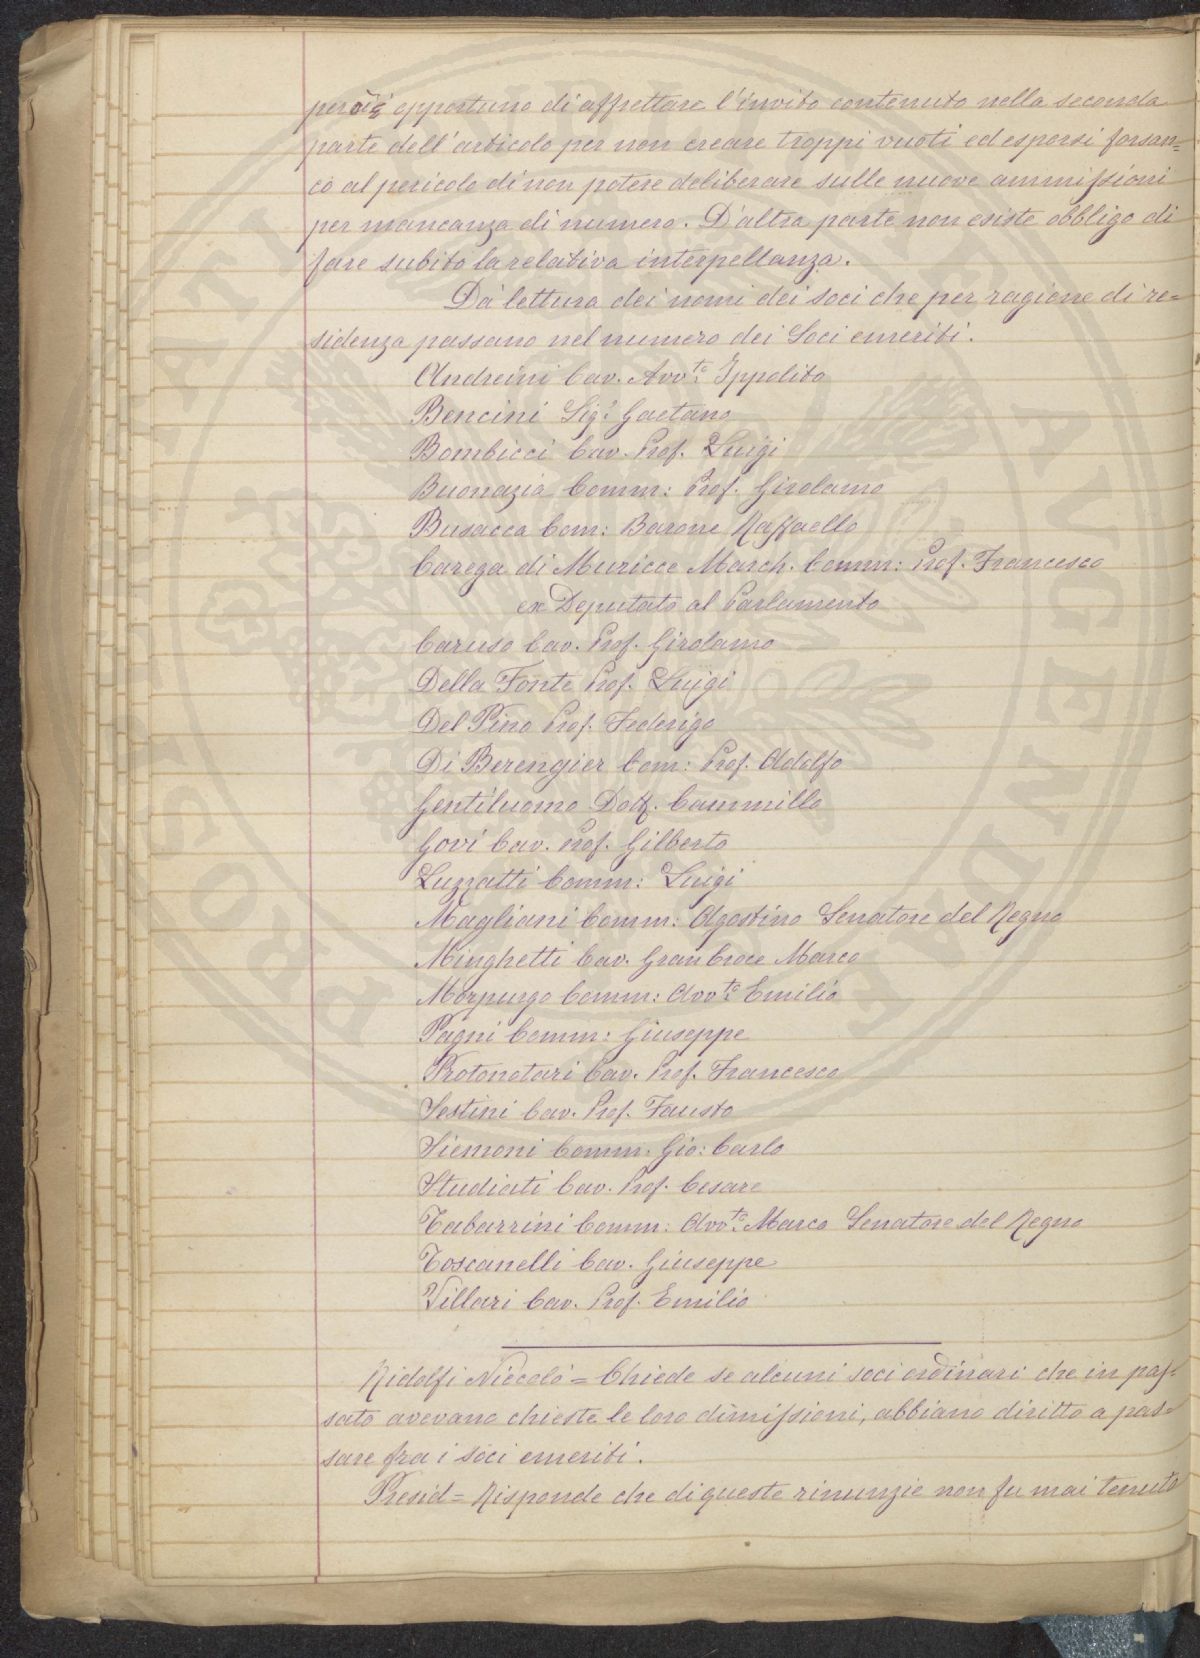 però è opportuno di affrettare l'invito contenuto nella seconda
parte dell'articolo per non creare troppi vuoti ed esporsi forsan=
co al pericolo di non potere deliberare sulle nuove ammissioni
per mancanza di numero. D'altra parte non esiste obbligo di
fare subito la relativa interpellanza.
Dà lettura dei nomi dei soci che per ragione di re=
sidenza passano nel numero dei Soci emeriti.
Andreini Cav. Avv.to Ippolito
Bencini Sig.r Gaetano
Bombicci Cav. Prof. Luigi
Buonazia Comm: Prof. Girolamo
Busacca Com: Barone Raffaello
Carega di Muricce March. Comm: Prof. Francesco
ex Deputato al Parlamento
Caruso Cav. Prof. Girolamo
Della Fonte Prof. Luigi
Del Pino Prof. Federigo
Di Berengier Com: Prof. Adolfo
Gentiluomo Dott. Cammillo
Govi Cav. Prof. Gilberto
Luzzatti Comm: Luigi
Magliani Comm: Agostino Senatore del Regno
Minghetti Cav. Gran Croce Marco
Morpurgo Comm: Avv.to Emilio
Pagni Comm: Giuseppe
Protonotari Cav. Prof. Francesco
Sestini Cav. Prof. Fausto
Siemoni Comm. Gio: Carlo
Studiati Cav. Prof. Cesare
Tabarrini Comm: Avv.to Marco Senatore del Regno
Toscanelli Cav. Giuseppe
Villari Cav. Prof. Emilio
Ridolfi Niccolò = Chiede se alcuni soci ordinari che in pas=
sato avevano chieste le loro dimissioni, abbiano diritto a pas=
sare fra i soci emeriti.
Presid = Risponde che di queste rinunzie non fu mai tenuto